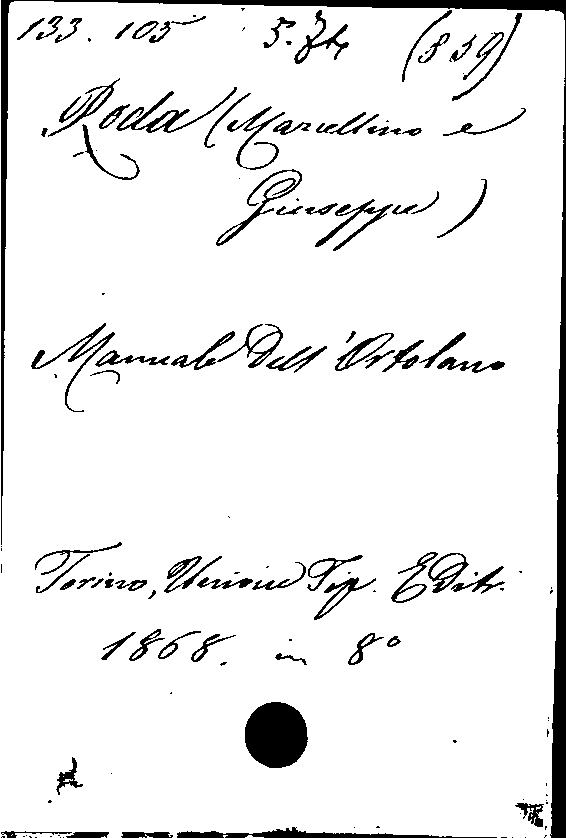 133. 105 (859)
Roda (Marcellino e
Giuseppe)
Manuale Dell'Ortolano
Torino, Unione Tip. Editr.
1868. in 8°